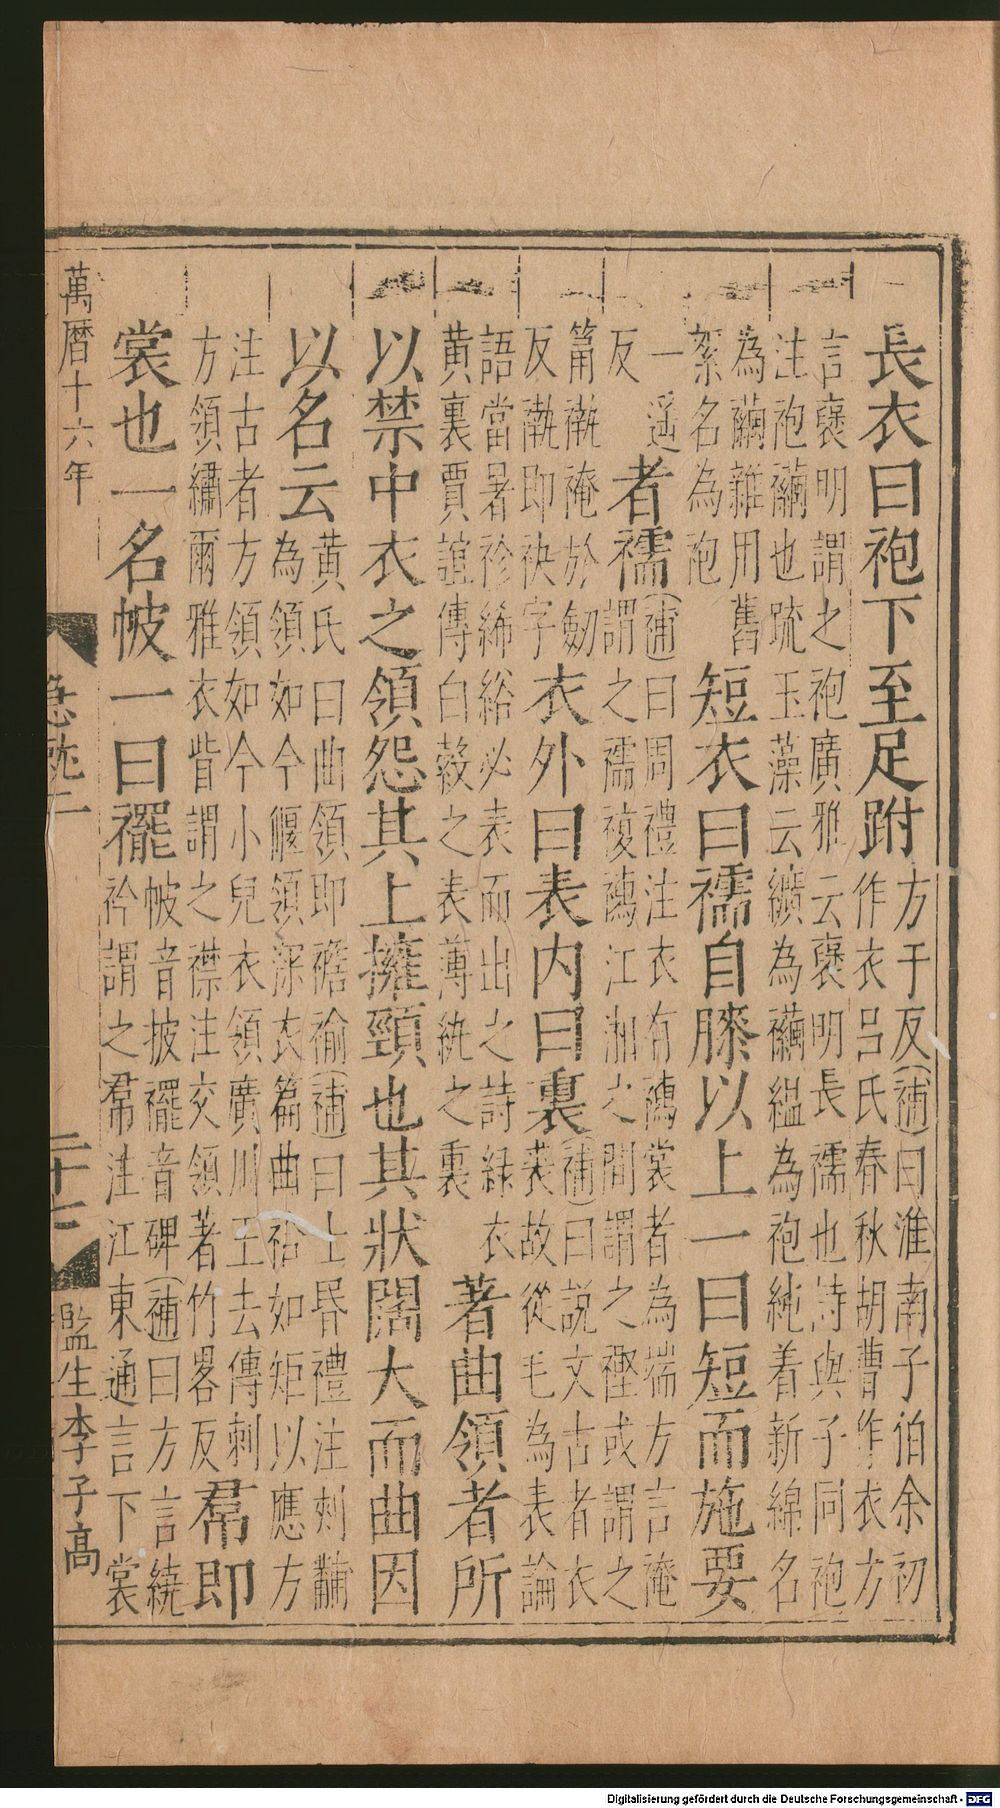 長衣曰袍下至足跗方于反補曰淮南子伯余初
作衣呂氏春秋胡曹作衣方
言襃明謂之袍廣雅云襃明長襦也詩與子同袍
注袍襺也疏玉藻云纊為襺縕為袍純着新綿名
為襺雜用舊
絮名為袍
短衣曰襦自膝以上一曰短而施要
一遥
反
者襦補曰周禮注衣有襦裳者為端方言㡓
謂之襦複襦江湘之間謂之䙆或謂之
筩褹㡓於劒
反褹即袂字
衣外曰表内曰裏補曰説文古者衣
裘故從毛為表論
語當暑袗絺綌必表而出之詩緑衣
黄裏賈誼傳白縠之表薄紈之裏
著曲領者所
以禁中衣之領怨其上擁頸也其狀闊大而曲因
以名云黄氏曰曲領即襜褕補曰士昏禮注刺黼
為領如今偃領深衣篇曲袷如矩以應方
注古者方領如今小兒衣領廣川王去傳刺
方領繡爾雅衣眥謂之襟注交領著竹畧反
帬即
裳也一名帔一曰襬帔音披襬音碑補曰方言繞
衿謂之帬注江東通言下裳
萬曆十六年
急就二
二十七
監生李子高
Digitalisierung gefördert durch die Deutsche Forschungsgemeinschaft - DFG